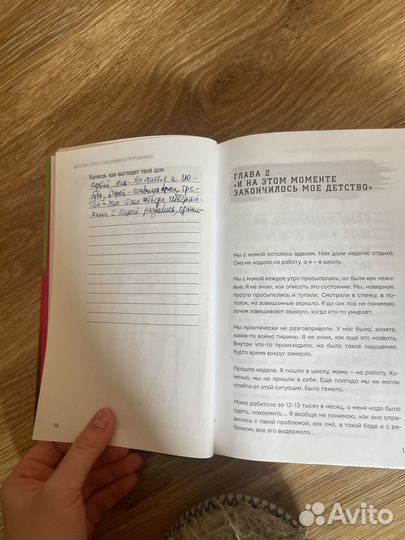 ДЕТСТВО. САМОЕ СЧАСТЛИВОЕ И ТРЕПЕТНОЕ
Напиши, как выглядит твой дом.
и Лю-
бовь,
Тре-
С
18
ГЛАВА 2
«И НА ЭТОМ МОМЕНТЕ
ЗАКОНЧИЛОСЬ МОЕ ДЕТСТВО»
Мы с мамой остались вдвоем. Нам дали неделю отдыха.
Она не ходила на работу, а я – в школу.
Мы с мамой каждое утро просыпались, но были как нежи-
вые. Я не знаю, как описать это состояние. Мы, наверное,
просто просыпались и тупили. Смотрели в стенку, в пото-
лок, на завешанные зеркала. Я до сих пор не понимаю, зачем
завешивают зеркало, когда кто-то умирает.
Мы практически не разговаривали. У нас была, знаете,
какая-то война тишины. Я не знаю, как еще это назвать.
Внутри что-то происходило, но было такое ощущение,
будто время вокруг замерло.
Прошла неделя. Я пошла в школу, мама – на работу. Ко-
нечно, мы не пришли в себя. Еще полгода мы не могли
отойти от этой ситуации. Было тяжело.
Мама работала за 12–13 тысяч в месяц, а меня надо было
одеть, накормить... Я вообще не понимаю, как она спра-
вилась с такой проблемой; как она, в такой беде и с ре-
бенком, все это выдержала...
Avito